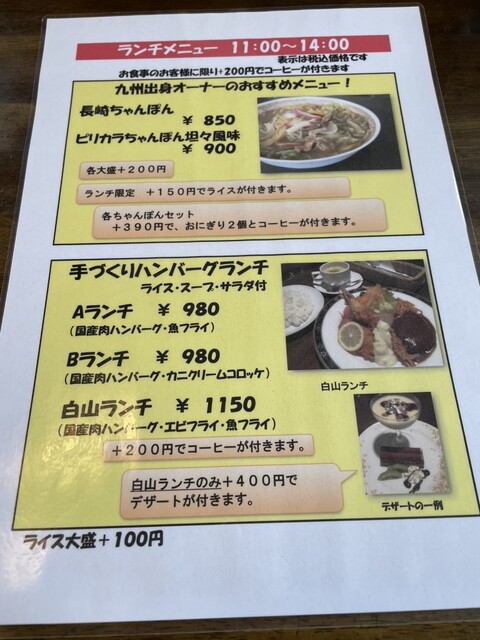 ランチメニュー 11:00～14:00
表示は税込価格です
お食事のお客様に限り+200円でコーヒーが付きます
九州出身オーナーのおすすめメニュー！
長崎ちゃんぽん
￥ 850
ピリカラちゃんぽん坦々風味
￥ 900
各大盛＋２００円
ランチ限定 ＋１５０円でライスが付きます。
各ちゃんぽんセット
＋３９０円で、おにぎり２個とコーヒーが付きます。
手づくりハンバーグランチ
ライス・スープ・サラダ付
Aランチ ￥ 980
(国産肉ハンバーグ・魚フライ)
Bランチ ￥ 980
(国産肉ハンバーグ・カニクリームコロッケ)
白山ランチ ￥ 1150
(国産肉ハンバーグ・エビフライ・魚フライ)
＋２００円でコーヒーが付きます。
白山ランチ
白山ランチのみ＋４００円で
デザートが付きます。
デザートの一例
ライス大盛＋100円